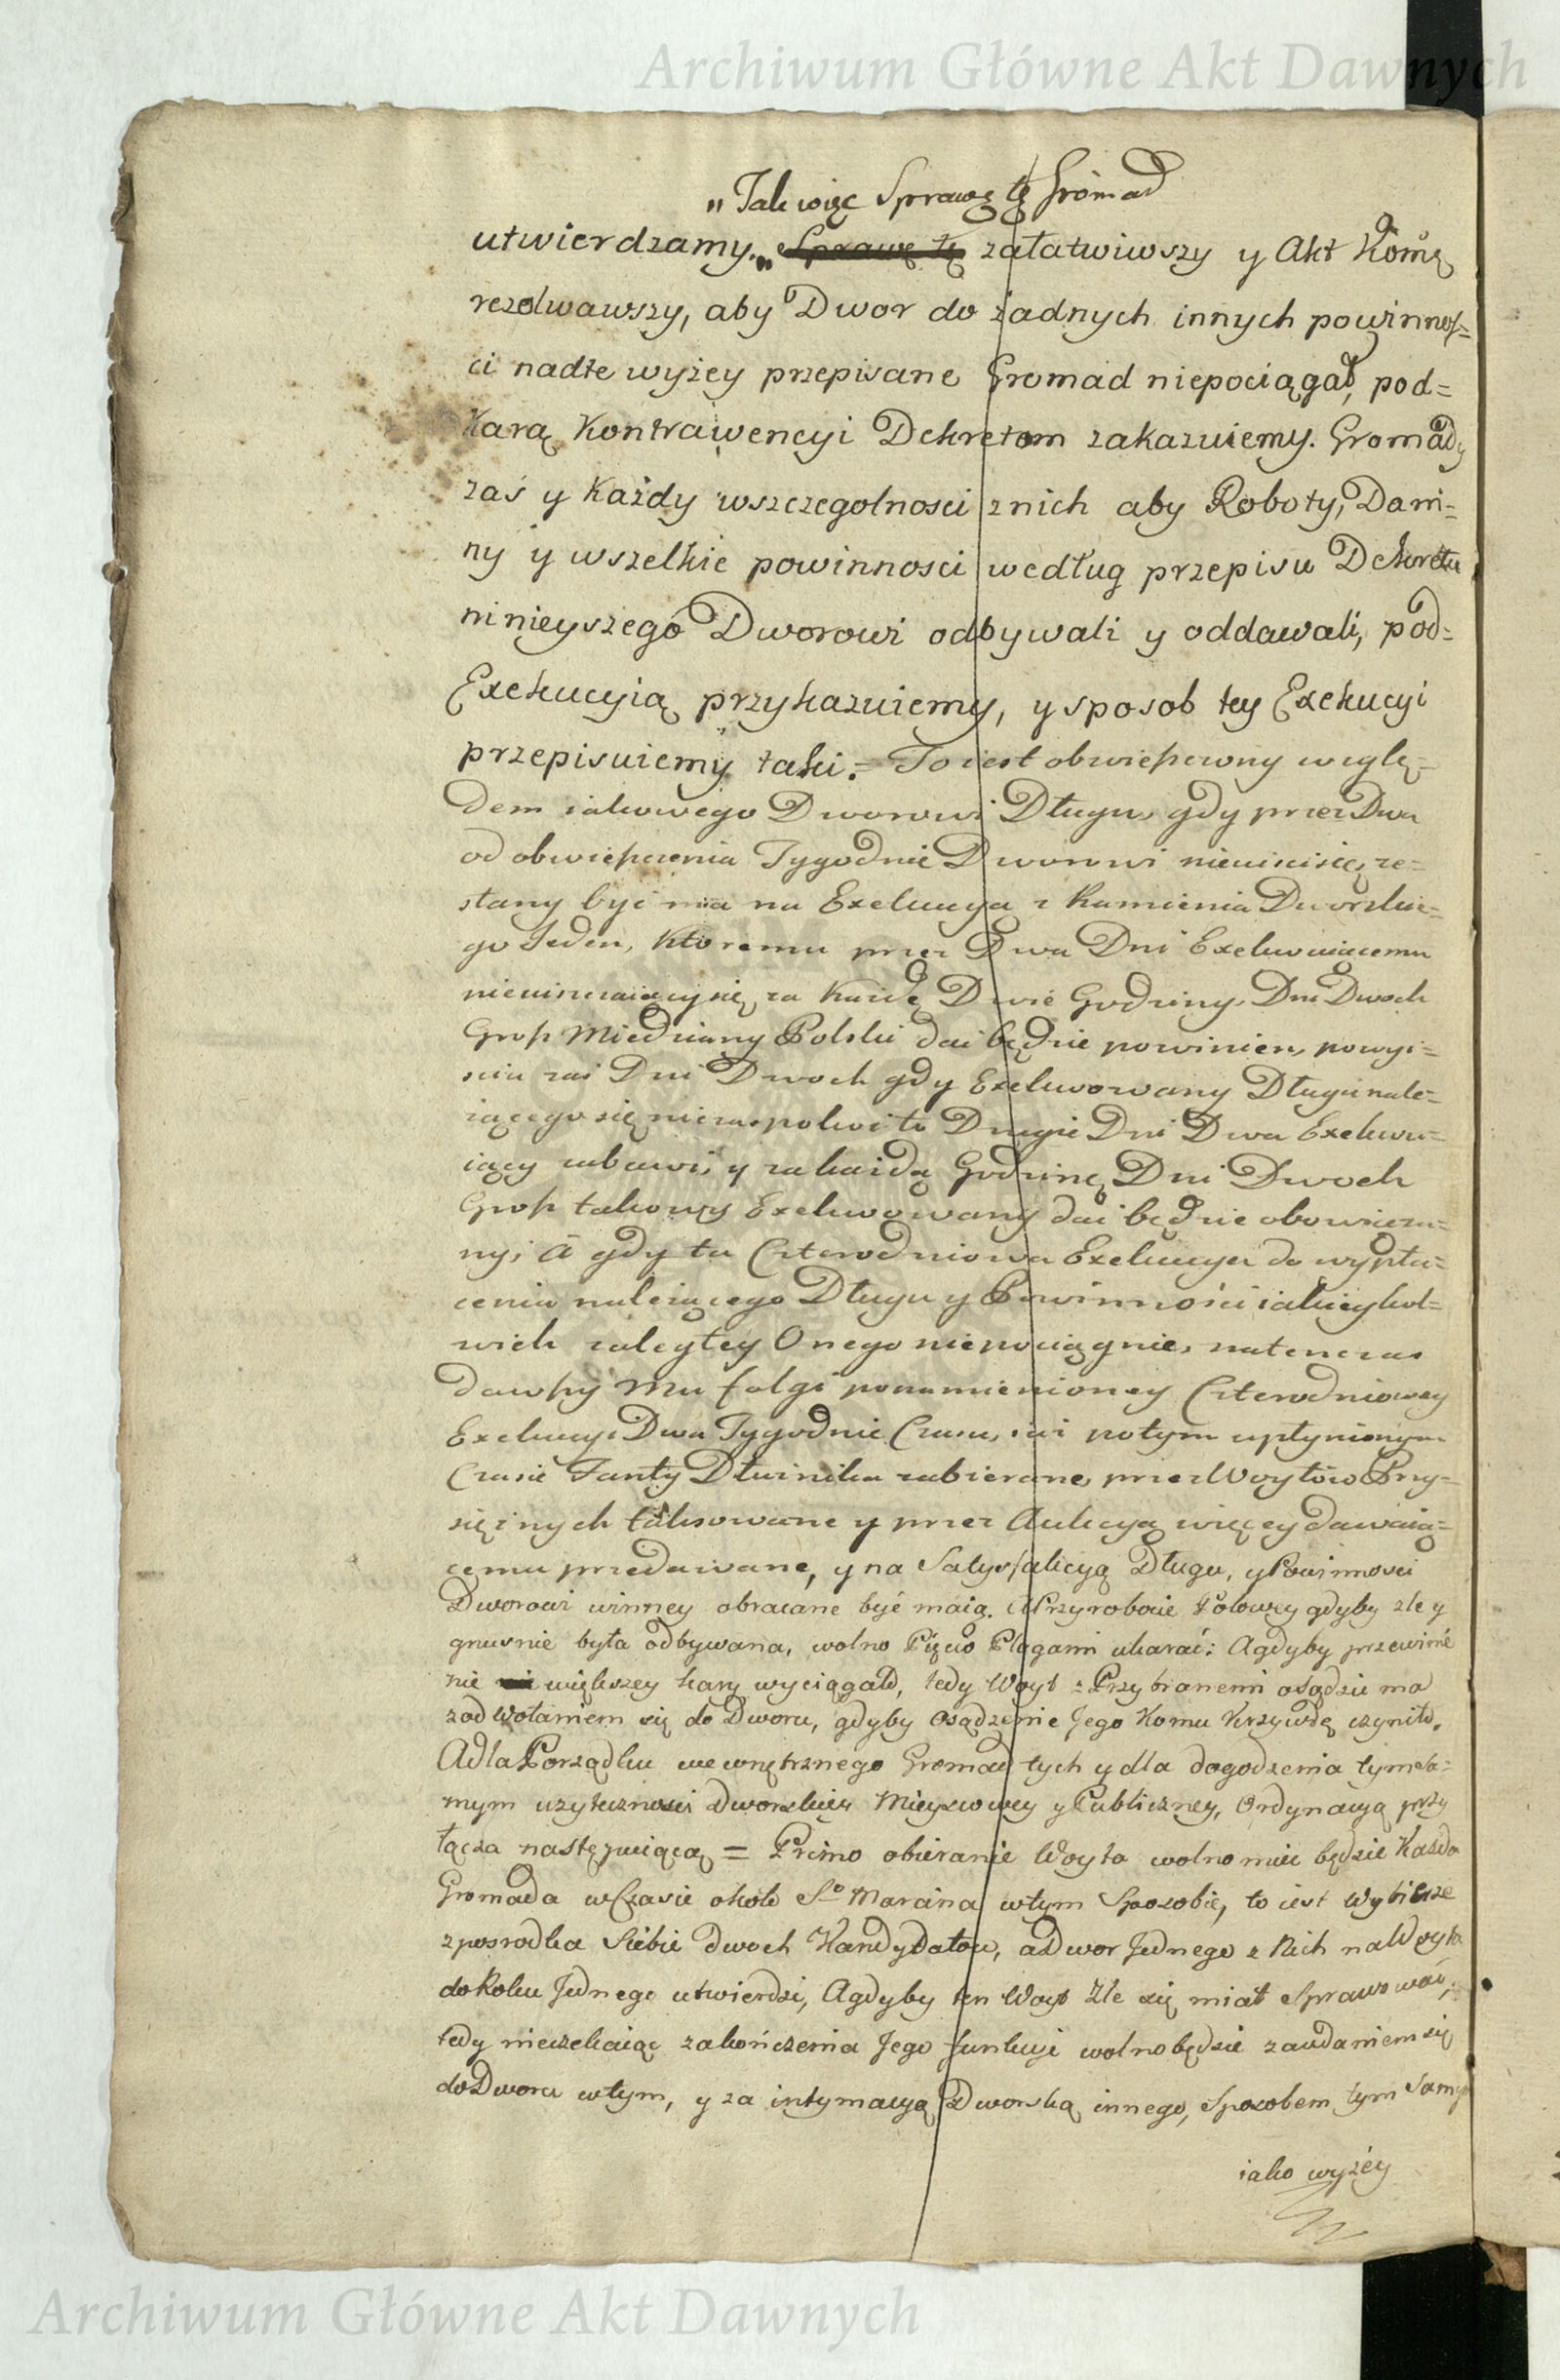 Archiwum Główne Akt Dawnych
„Tak więc Sprawę tę Gromad
utwierdzamy.„ Sprawę tę załatwiwszy y Akt Kom̃ę
rezolwawszy, aby Dwor do żadnych innych powinnoś=
ci nadte wyżey przepisane Gromad niepociągał, pod=
Karą Kontrawencyi Dekretom zakazuiemy. Gromady
zaś y Każdy wszczegolnosci znich aby Roboty, Dani=
ny y wszelkie powinnosci według przepisu Dekretu
ninieyszego Dworowi odbywali y oddawali, pod=
Exekucyią przykazuiemy, y sposob tey Exekucyi
przepisuiemy taki.= To iest obwieszczony wzglę=
dem iakowego Dworowi Długu, gdy przez Dwa
od obwieszczenia Tygodnie Dworowi nieuiscisię ze=
słany być ma na Exekucyą z Ramienia Dworskie=
go Jeden, Ktoremu przez Dwa Dni Exekwuiącemu
nieuiszczaiący się za Każdę Dwie Godziny Dni Dwoch
Grosz Miedziany Polski dać będzie powinien, powyi=
sciu zaś Dni Dwoch gdy Exekwowany Długu nale=
żącego się niezaspokoi to Drugie Dni Dwa Exekwu=
iący zabawi, y za każdą Godzinę Dni Dwoch
Grosz takowy Exekwowany dać będzie obowiąza=
ny; A gdy ta Czterodniowa Exekucya do wypła=
cenia należącego Długu y Powinności iakieykol=
wiek zaległey Onego niepociągnie, natenczas
dawszy Mu folgi ponamienioney Czterodniowey
Exekucyi Dwa Tygodnie Czasu, iuż potym upłynionym
Czasie Fanty Dłużnika zabierane, przez Woytów Przy=
siężnych taksowane y przez Aukcyą więcey dawaią=
cemu przedawane, y na Satysfakcyą Długu, y Powinnosci
Dworowi winney obracane być maią. A Przy robocie Polowey gdyby zle y
gnusnie była odbywana, wolno Pięcio Plagami ukarać: Agdyby przewinie
nie większey kary wyciągało, tedy Woyt z Przybranemi osądzić ma
zodwołaniem się do Dworu, gdyby Osądzenie Jego Komu Krzywdę czyniło.
Adla Porządku wewnętrznego Gromad tych y dla dogodzenia tymsa=
mym uzyteczności Dworskiey Mieyscowey y Publiczney, Ordynacyą przy
łącza następuiącą = Primo obieranie Woyta wolno mieć będzie Każda
Gromada wCzasie około So Marcina wtym Sposobie, to iest Wybierze
zposrodka Siebie dwoch Kandydatow, aDwor Jednego z Nich na Woyta
doRoku Jednego utwierdzi, Agdyby ten Woyt Zle się miał Sprawować,
tedy nieczekaiąc zakończenia Jego funkcyi wolno będzie zaudaniem się
doDworu wtym, y za intymacyą Dworską innego, Sposobem tym samym
iako wyżey
Archiwum Główne Akt Dawnych